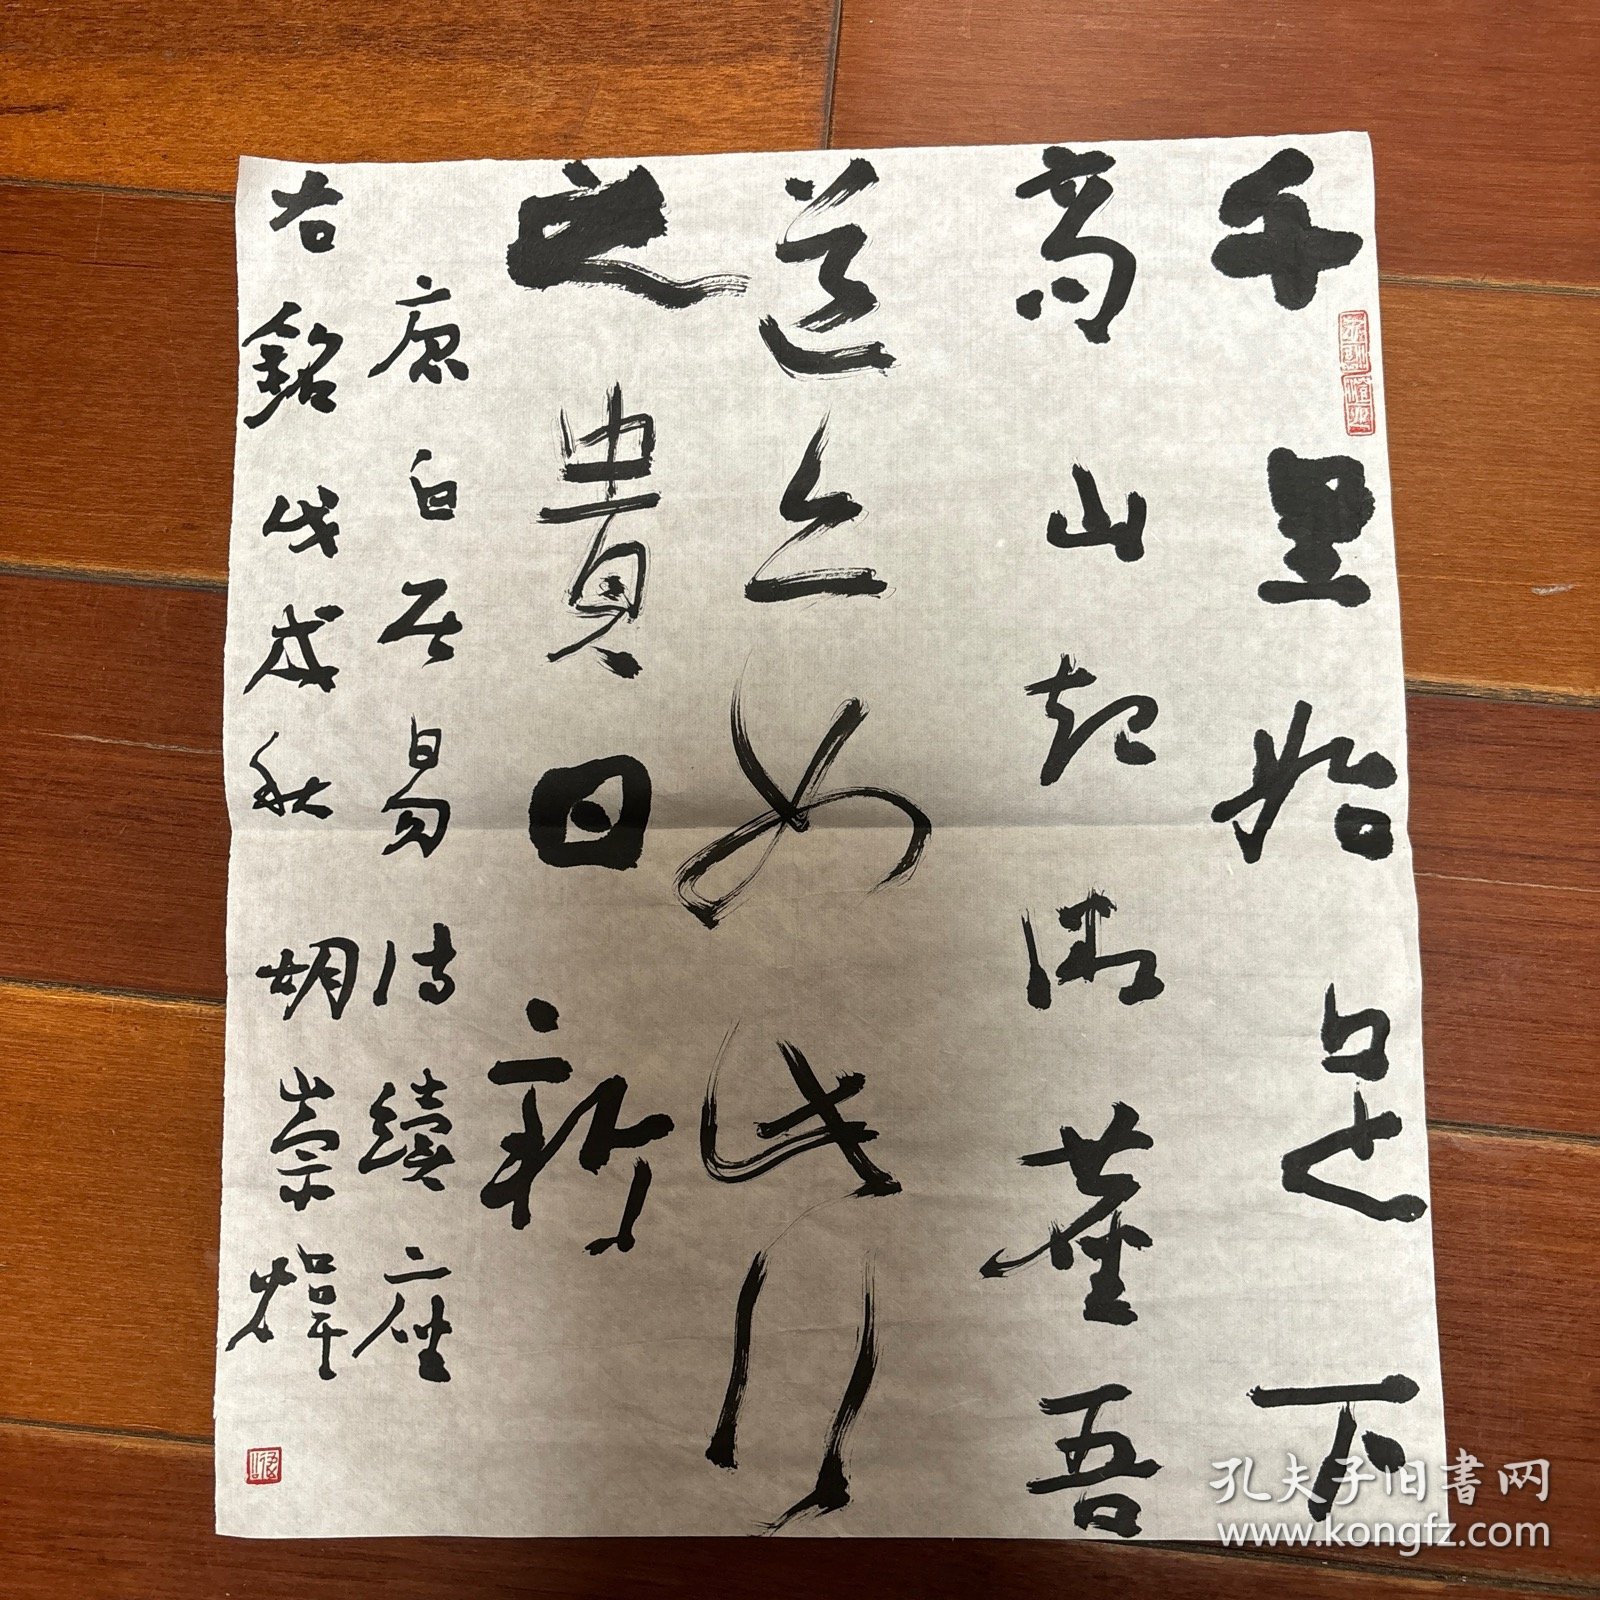 千里始足下
高山起微塵吾
道亦如此行
之貴日新
唐白居易詩續座
右銘戊戌秋胡崇煒
孔夫子旧書网
www.kongfz.com